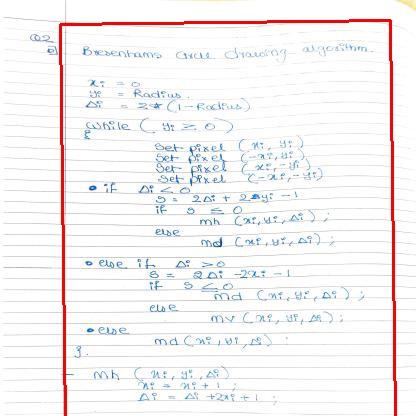 Q2
a) Bresenhams circle drawing algorithm.
xi = 0
yi = Radius.
Δi = 2*(1-Radius)
while ( yi ≥ 0 )
{
Set pixel ( xi, yi)
Set pixel (-xi, yi)
Set pixel ( xi, -yi)
Set pixel (-xi, -yi)
• if Δi < 0
S = 2Δi + 2yi -1
if S ≤ 0
mh (xi, yi, Δi) ;
else
md (xi, yi, Δi) ;
• else if Δi > 0
S = 2Δi -2xi -1
if S ≤ 0
md (xi, yi, Δi) ;
else
mv (xi, yi, Δi) ;
• else
md (xi, yi, Δi) ;
}.
- mh (xi, yi, Δi)
xi = xi + 1 ;
Δi = Δi +2xi +1 ;